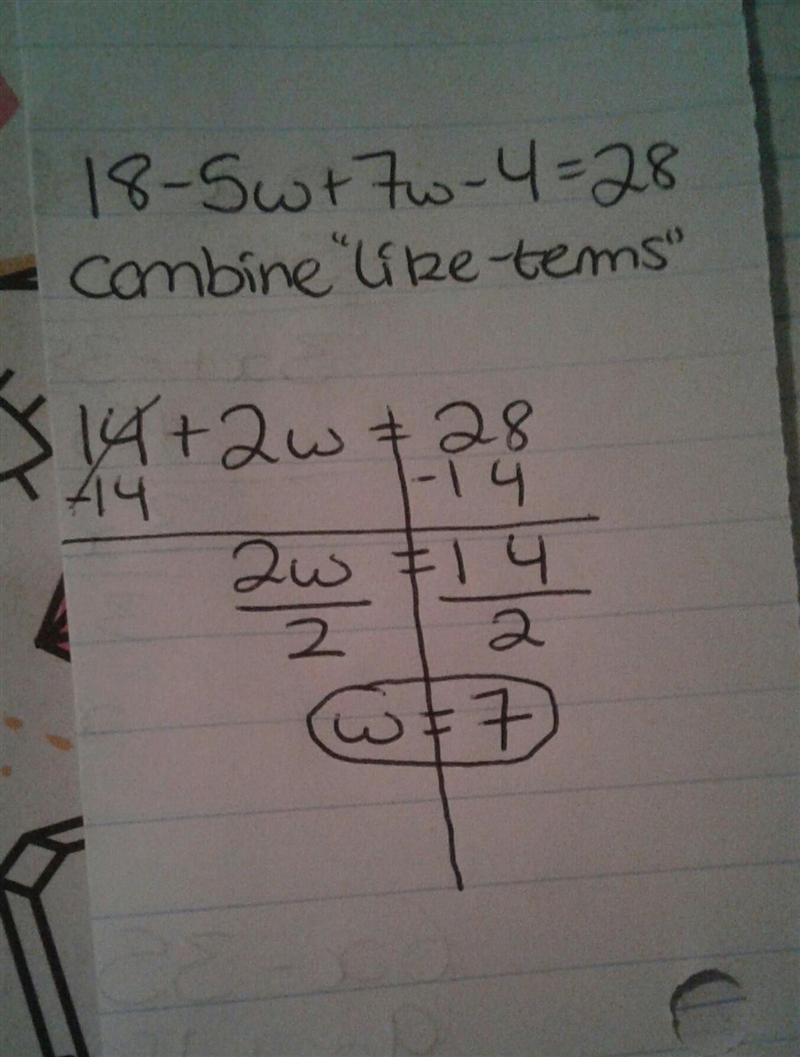 18-5w+7w-4=28
combine "like-tems"
14+2w=28
-14 -14
2w =14
2 2
w=7